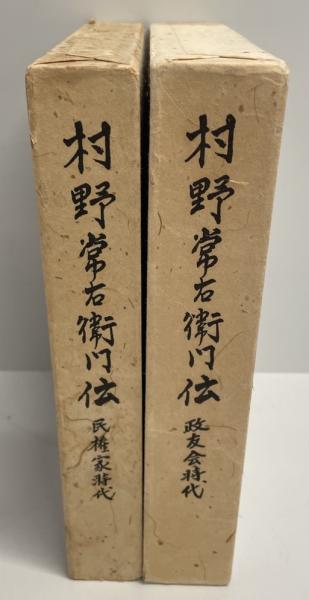 村野常右衛門伝
民権家時代
村野常右衛門伝
政友会時代